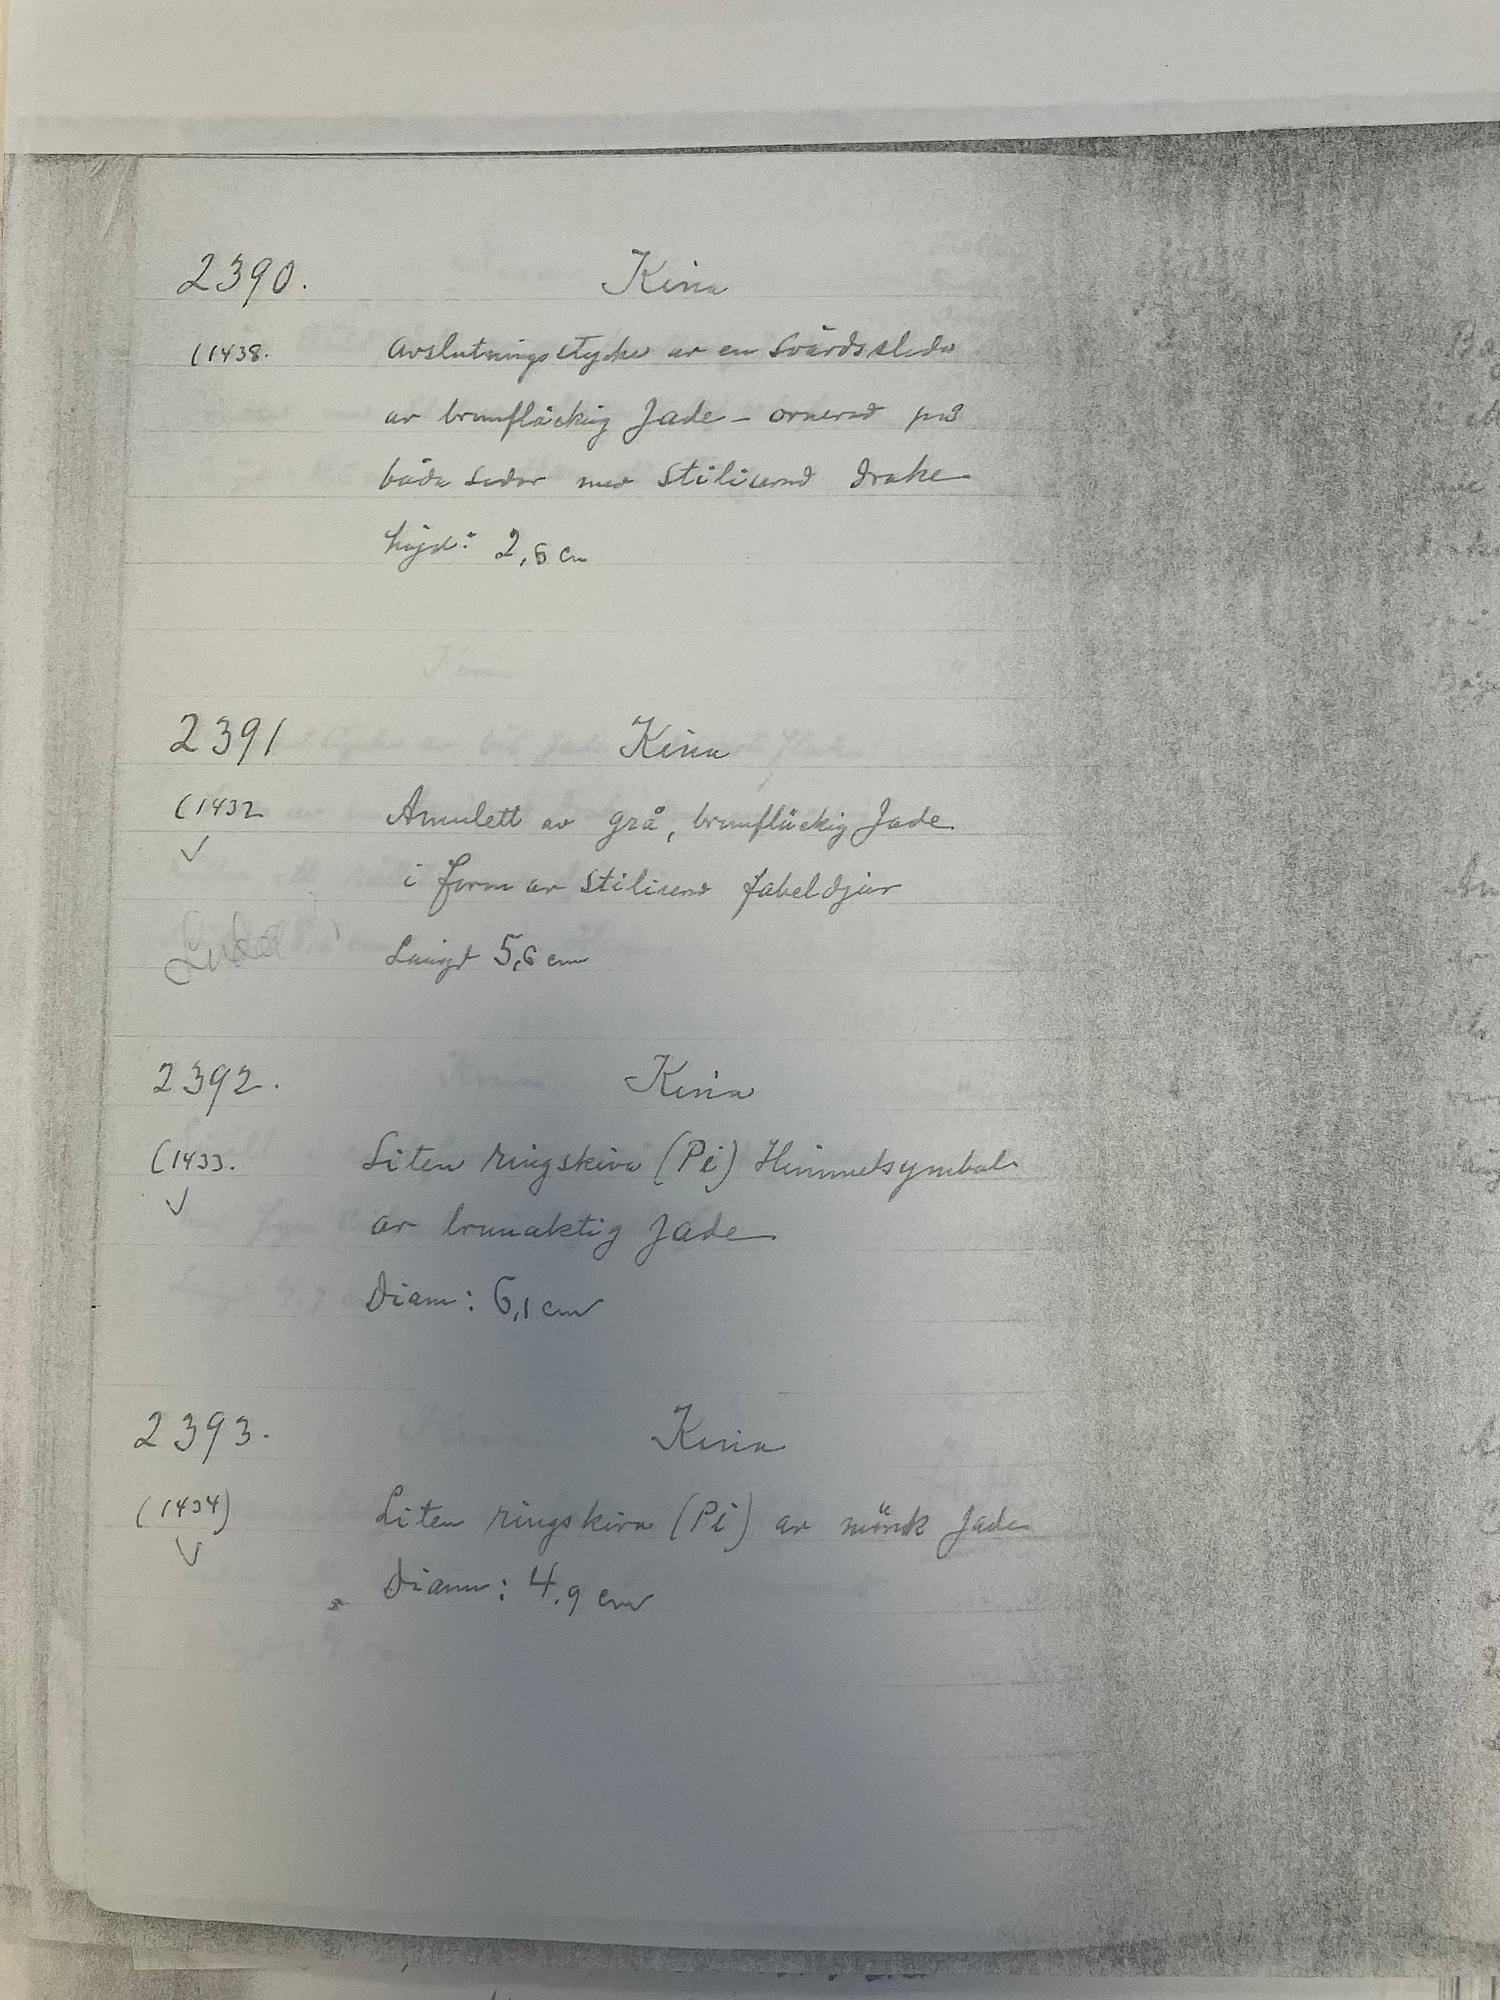 2390. Kina
(1438. Avslutningsstycke av en svärdsslida
av brunfläckig Jade - ornerad på
båda sidor med stiliserad drake
höjd: 2,6 cm
2391 Kina
(1432 Amulett av grå, brunfläckig Jade
i form av stiliserat fabeldjur
Längd 5,6 cm
2392. Kina
(1433. Liten ringskiva (Pi) Himmelsymbol
av brunaktig Jade
Diam: 6,1 cm
2393. Kina
(1434) Liten ringskiva (Pi) av mörk Jade
Diam: 4,9 cm